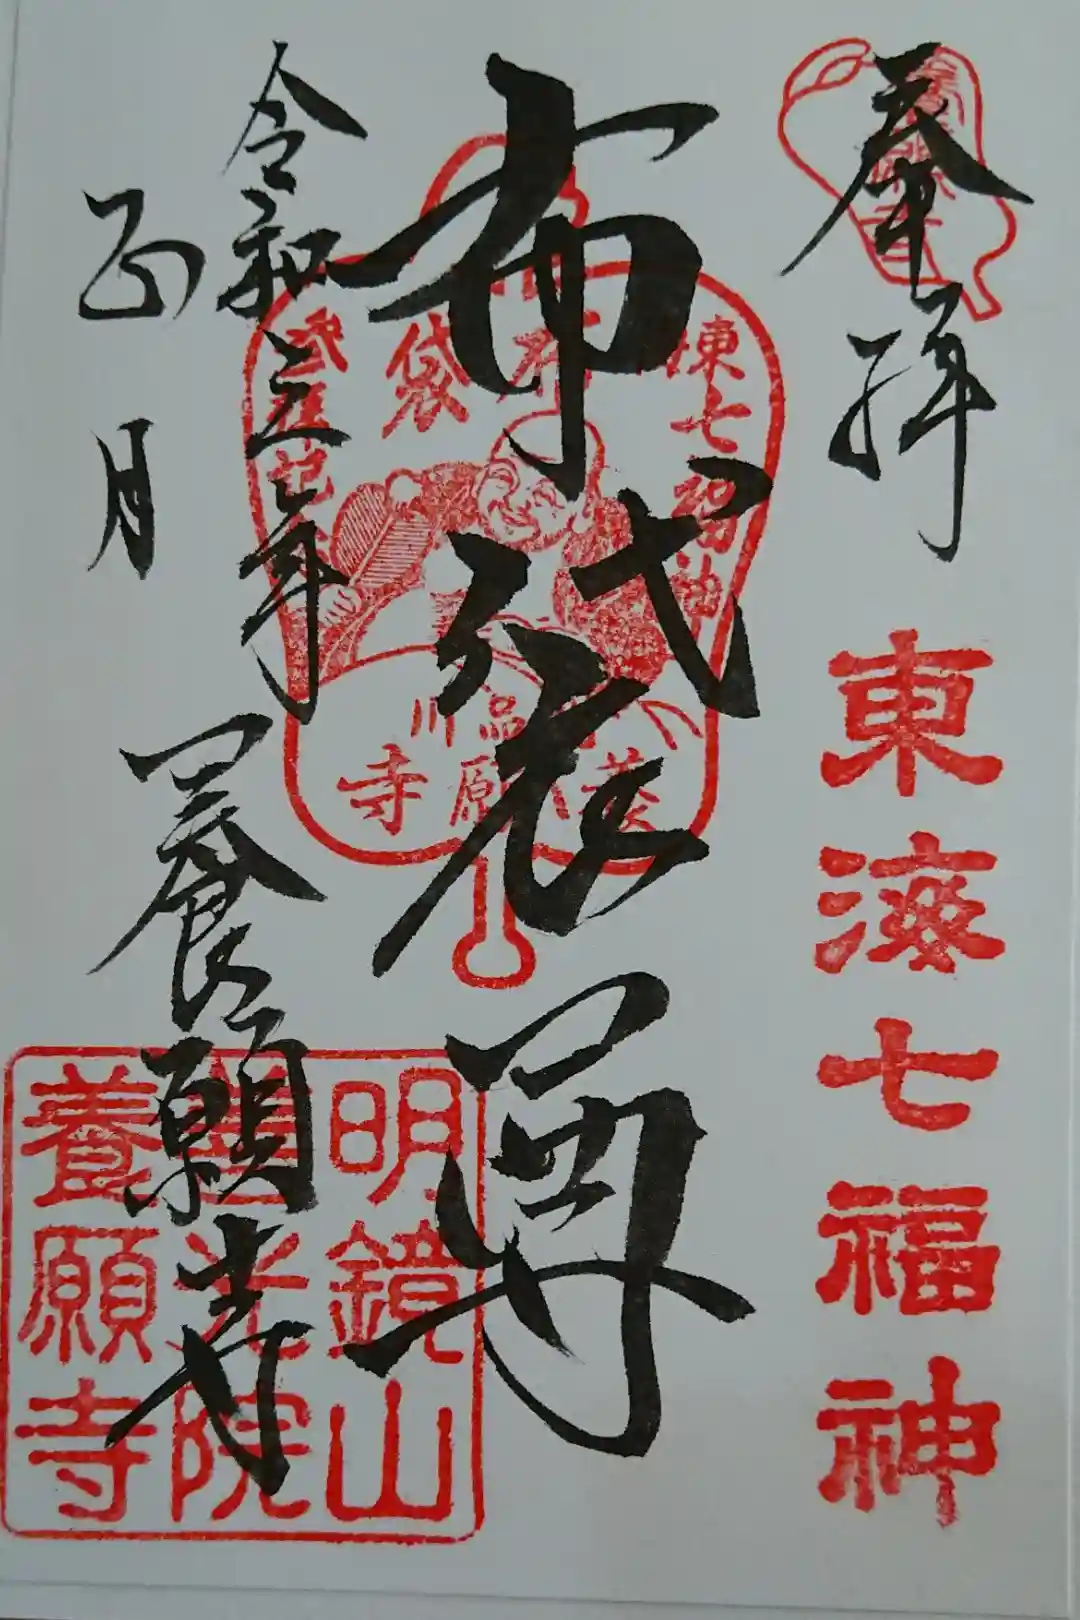 奉拝
東海七福神
布袋尊
東七福神
布袋
参拝記念
品川
養願寺
令和三年
正月
養願寺
明鏡山
善光院
養願寺